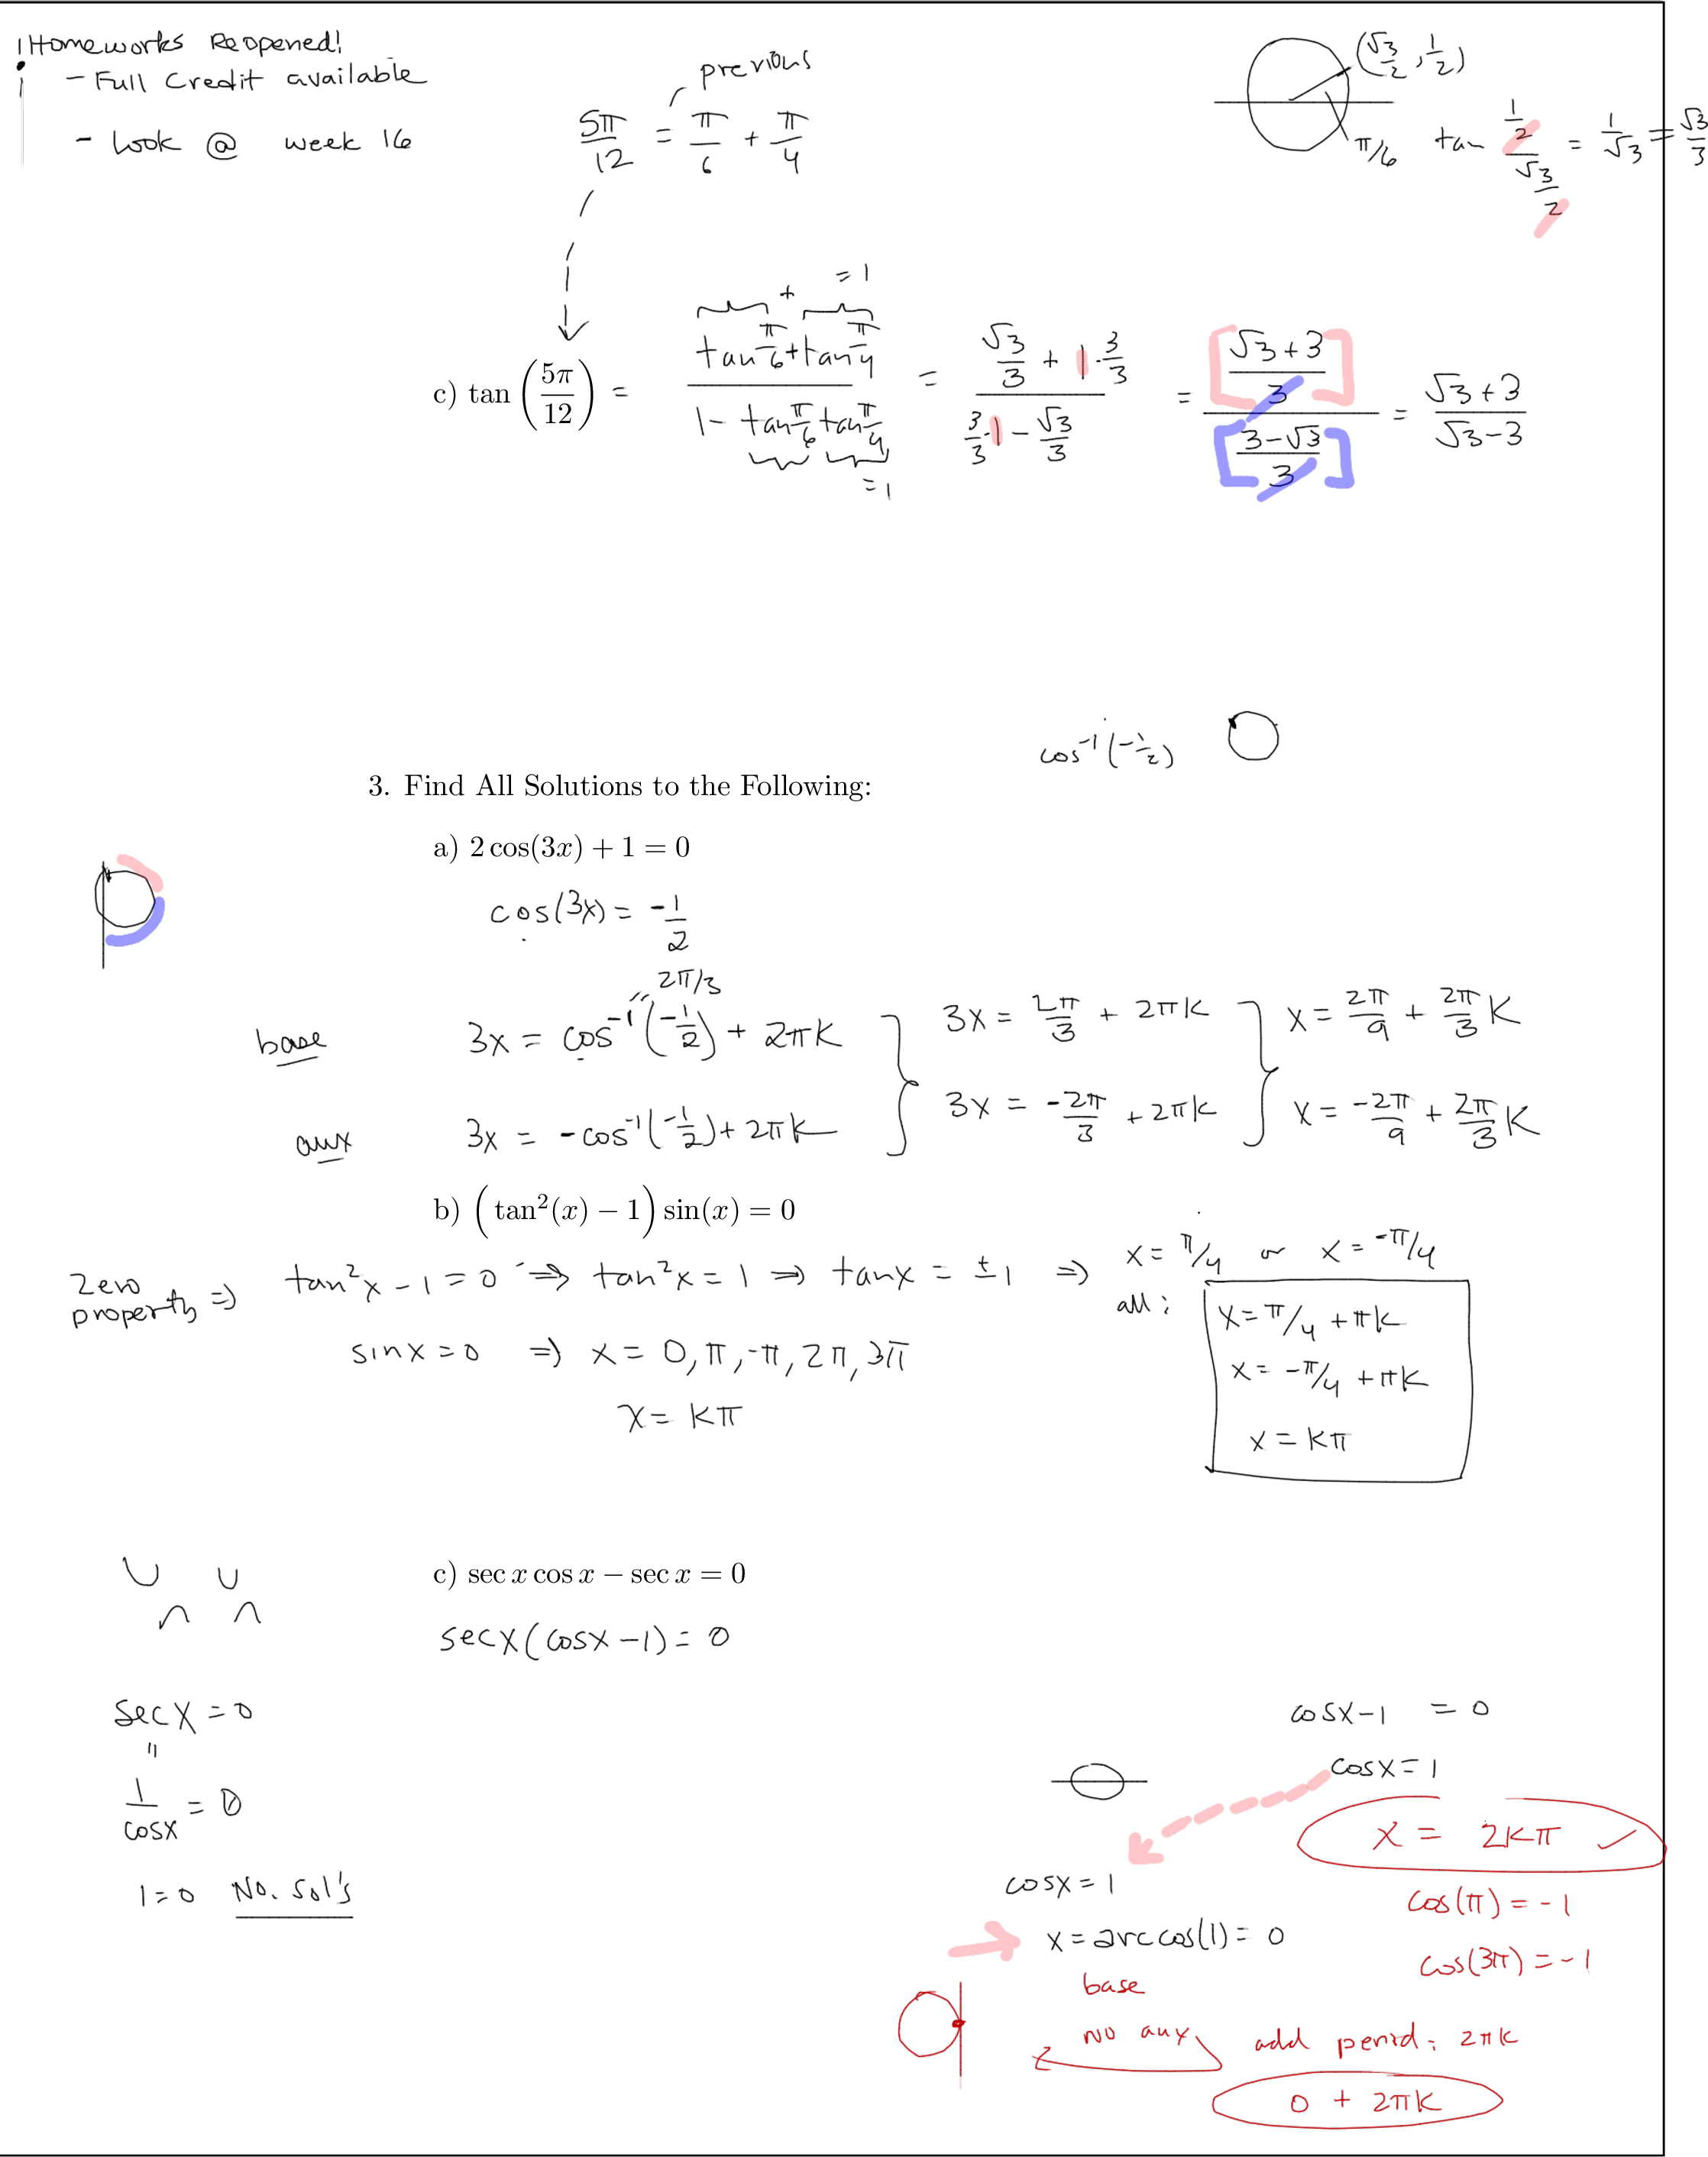 ! Homeworks Reopened!
- Full Credit available
- Look @ week 16
previous
5π/12 = π/6 + π/4
(√3/2, 1/2)
π/6
tan (1/2)/(√3/2) = 1/√3 = √3/3
+ = 1
c) tan(5π/12) = (tan π/6 + tan π/4)/(1 - tan π/6 tan π/4) = (√3/3 + 1·3/3)/(3/3·1 - √3/3) = [(√3+3)/3]/[(3-√3)/3] = (√3+3)/(√3-3)
= 1
cos⁻¹(-1/2)
3. Find All Solutions to the Following:
a) 2 cos(3x) + 1 = 0
cos(3x) = -1/2
2π/3
base 3x = cos⁻¹(-1/2) + 2πK } 3x = 2π/3 + 2πK } x = 2π/9 + 2π/3 K
aux 3x = -cos⁻¹(-1/2) + 2πK 3x = -2π/3 + 2πK x = -2π/9 + 2π/3 K
b) (tan²(x) − 1) sin(x) = 0
zero property ⇒ tan²x - 1 = 0 ⇒ tan²x = 1 ⇒ tanx = ±1 ⇒ x = π/4 or x = -π/4
all:
x = π/4 + πK
x = -π/4 + πK
x = Kπ
sinx = 0 ⇒ x = 0, π, -π, 2π, 3π
x = Kπ
c) sec x cos x − sec x = 0
secx(cosx - 1) = 0
secx = 0
"
1/cosx = 0
1 = 0 No. Sol's
cosx - 1 = 0
cosx = 1
x = 2Kπ ✓
cos(π) = -1
cos(3π) = -1
cosx = 1
x = arccos(1) = 0
base
no aux
add period: 2πK
0 + 2πK